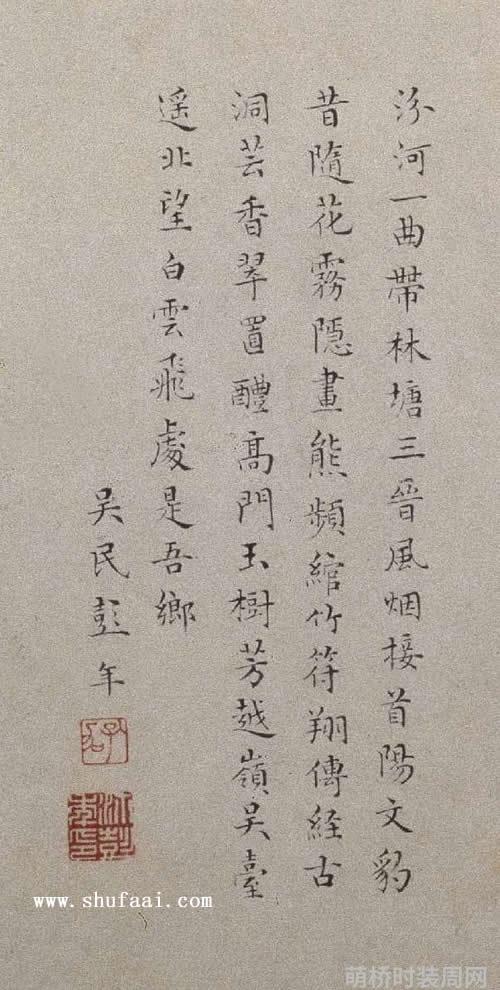 汾河一曲帶林塘三晉風烟接首陽文豹
昔隨花霧隱畫熊頻綰竹符翔傳経古
洞芸香翠置醴高門玉樹芳越嶺吳臺
遥北望白雲飛處是吾鄉
吳民彭年
www.shufaai.com
萌桥时装周网